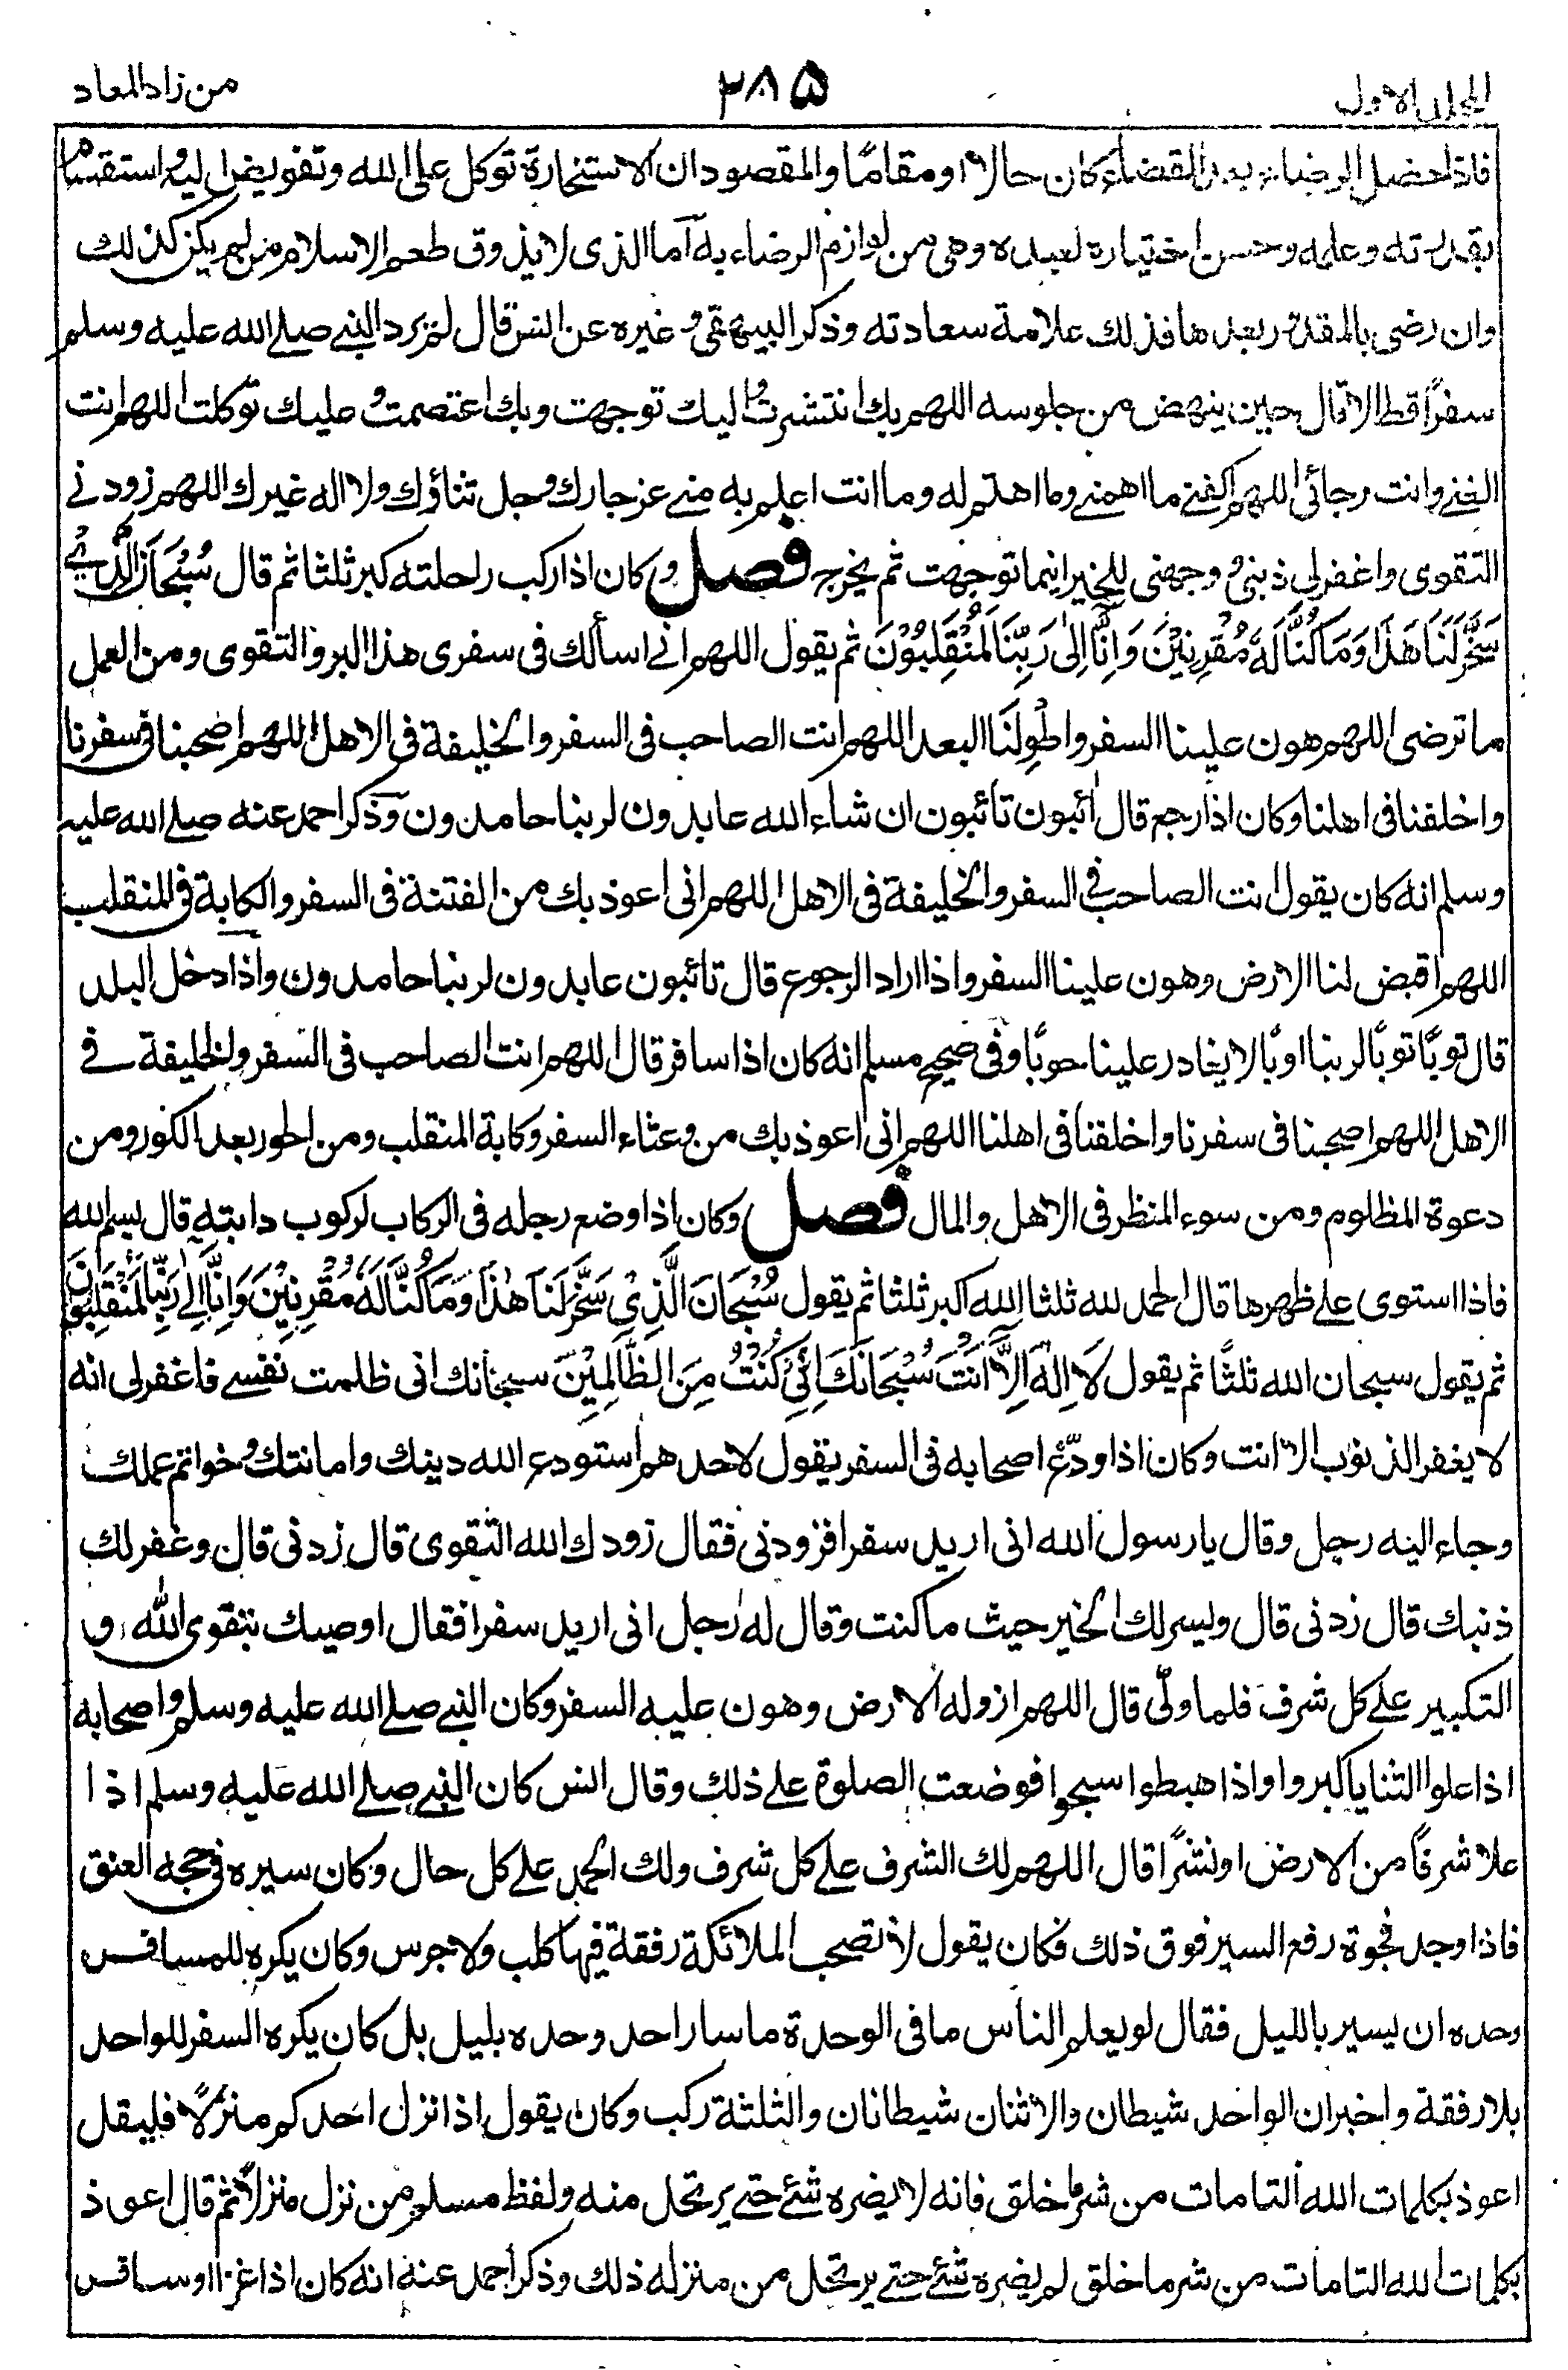 المجلد الاول ٣٨٥ من زاد المعاد
فاذا حصل الرضاء بعد القضاء كان حالا او مقاما والمقصود ان الاستخارة توكل على الله وتفويض اليه واستقسام
بقدرته وعلمه وحسن اختياره لعبده وهى من لوازم الرضاء به اما الذى لا يذوق طعم الاسلام من لم يكن كذلك
وان رضى بالمقدور بعدها فذلك علامة سعادته وذكر البيهقى وغيره عن انس قال لم يرد النبى صلى الله عليه وسلم
سفرًا قط الا قال حين ينهض من جلوسه اللهم بك انتشرت واليك توجهت وبك اعتصمت وعليك توكلت اللهم انت
ثقتى وانت رجائى اللهم اكفنى ما اهمنى وما اهتم له وما انت اعلم به منى عز جارك وجل ثناؤك ولا اله غيرك اللهم زودنى
التقوى واغفر لى ذنبى ووجهنى للخير اينما توجهت ثم يخرج فصل وكان اذا ركب راحلته كبر ثلثا ثم قال سُبْحَانَ الَّذِىْ
سَخَّرَ لَنَا هٰذَا وَمَا كُنَّا لَهٗ مُقْرِنِيْنَ وَاِنَّا اِلٰى رَبِّنَا لَمُنْقَلِبُوْنَ ثم يقول اللهم انى اسألك فى سفرى هذا البر والتقوى ومن العمل
ما ترضى اللهم هون علينا السفر واطْوِ لَنَا البعد اللهم انت الصاحب فى السفر والخليفة فى الاهل اللهم اصحبنا فى سفرنا
واخلفنا فى اهلنا وكان اذا رجع قال ائبون تائبون ان شاء الله عابدون لربنا حامدون وذكر احمد عنه صلى الله عليه
وسلم انه كان يقول انت الصاحب فى السفر والخليفة فى الاهل اللهم انى اعوذ بك من الفتنة فى السفر والكابة فى المنقلب
اللهم اقبض لنا الارض وهون علينا السفر واذا اراد الرجوع قال تائبون عابدون لربنا حامدون واذا دخل البلد
قال توبًا توبًا لربنا اوبًا لا يغادر علينا حوبًا وفى صحيح مسلم انه كان اذا سافر قال اللهم انت الصاحب فى السفر والخليفة فى
الاهل اللهم اصحبنا فى سفرنا واخلفنا فى اهلنا اللهم انى اعوذ بك من وعثاء السفر وكابة المنقلب ومن الحور بعد الكور ومن
دعوة المظلوم ومن سوء المنظر فى الاهل والمال فصل وكان اذا وضع رجله فى الركاب لركوب دابته قال بسم الله
فاذا استوى على ظهرها قال الحمد لله ثلثا الله اكبر ثلثا ثم يقول سُبْحَانَ الَّذِىْ سَخَّرَ لَنَا هٰذَا وَمَا كُنَّا لَهٗ مُقْرِنِيْنَ وَاِنَّا اِلٰى رَبِّنَا لَمُنْقَلِبُوْنَ
ثم يقول سبحان الله ثلثًا ثم يقول لَا اِلٰهَ اِلَّا اَنْتَ سُبْحَانَكَ اِنِّىْ كُنْتُ مِنَ الظَّالِمِيْنَ سبحانك انى ظلمت نفسى فاغفر لى انه
لا يغفر الذنوب الا انت وكان اذا ودّع اصحابه فى السفر يقول لاحدهم استودع الله دينك وامانتك وخواتم عملك
وجاء اليه رجل وقال يا رسول الله انى اريد سفرا فزودنى فقال زودك الله التقوى قال زدنى قال وغفر لك
ذنبك قال زدنى قال ويسر لك الخير حيث ما كنت وقال له رجل انى اريد سفرا فقال اوصيك بتقوى الله و
التكبير على كل شرف فلما ولّى قال اللهم ازو له الارض وهون عليه السفر وكان النبى صلى الله عليه وسلم واصحابه
اذا علوا الثنايا كبروا واذا هبطوا سبحوا فوضعت الصلوة على ذلك وقال انس كان النبى صلى الله عليه وسلم اذا
علا شرفًا من الارض او نشزًا قال اللهم لك الشرف على كل شرف ولك الحمد على كل حال وكان سيره فى حجه العنق
فاذا وجد فجوة رفع السير فوق ذلك فكان يقول لا تصحب الملائكة رفقة فيها كلب ولا جرس وكان يكره للمسافر
وحده ان يسير بالليل فقال لو يعلم الناس ما فى الوحدة ما سار احد وحده بليل بل كان يكره السفر للواحد
بلا رفقة واخبر ان الواحد شيطان والاثنان شيطانان والثلثة ركب وكان يقول اذا نزل احدكم منزلًا فليقل
اعوذ بكلمات الله التامات من شر ما خلق فانه لا يضره شئ حتى يرتحل منه ولفظ مسلم من نزل منزلًا ثم قال اعوذ
بكلمات الله التامات من شر ما خلق لم يضره شئ حتى يرتحل من منزله ذلك وذكر احمد عنه انه كان اذا غزا او سافر